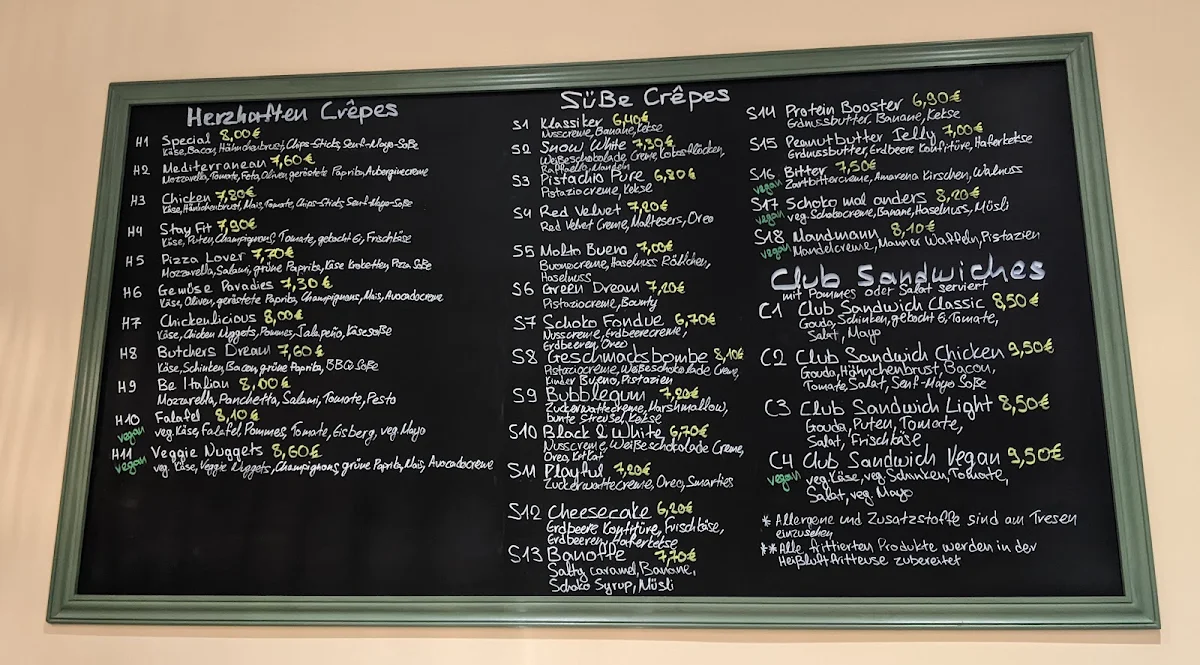 Herzhaften Crêpes
H1 Special 8,00€
Käse, Bacon, Hähnchenbrust, Chips-Sticks, Senf-Mayo-Soße
H2 Mediterranean 7,60€
Mozzarella, Tomate, Feta, Oliven, geröstete Paprika, Auberginecreme
H3 Chicken 7,80€
Käse, Hähnchenbrust, Mais, Tomate, Chips-Sticks, Senf-Mayo-Soße
H4 Stay Fit 7,90€
Käse, Puten, Champignons, Tomate, gekocht Ei, Frischkäse
H5 Pizza Lover 7,70€
Mozzarella, Salami, grüne Paprika, Käse Kroketten, Pizza Soße
H6 Gemüse Paradies 7,30€
Käse, Oliven, geröstete Paprika, Champignons, Mais, Avocadocreme
H7 Chickenlicious 8,00€
Käse, Chicken Nuggets, Pommes, Jalapeño, Käsesoße
H8 Butchers Dream 7,60€
Käse, Schinken, Bacon, grüne Paprika, BBQ Soße
H9 Be Italian 8,00€
Mozzarella, Panchetta, Salami, Tomate, Pesto
H10 Falafel 8,10€
vegan veg. Käse, Falafel, Pommes, Tomate, Eisberg, veg. Mayo
H11 Veggie Nuggets 8,60€
vegan veg. Käse, Veggie Nuggets, Champignons, grüne Paprika, Mais, Avocadocreme
Süße Crêpes
S1 Klassiker 6,40€
Nusscreme, Banane, Kekse
S2 Snow White 7,30€
Weißeschokolade Creme, Kokosflocken,
Raffaello, Mandeln
S3 Pistachio Pure 6,80€
Pistaziocreme, Kekse
S4 Red Velvet 7,20€
Red Velvet Creme, Maltesers, Oreo
S5 Molto Bueno 7,00€
Buenocreme, Haselnuss Röllchen,
Haselnuss
S6 Green Dream 7,20€
Pistaziocreme, Bounty
S7 Schoko Fondue 6,70€
Nusscreme, Erdbeerecreme,
Erdbeeren, Oreo
S8 Geschmacksbombe 8,10€
Pistaziocreme, Weißeschokolade Creme,
Kinder Bueno, Pistazien
S9 Bubblegum 7,20€
Zuckerwattecreme, Marshmallow,
bunte Streusel, Kekse
S10 Black & White 6,70€
Nusscreme, Weiße schokolade Creme,
Oreo, KitKat
S11 Playful 7,20€
Zuckerwattecreme, Oreo, Smarties
S12 Cheesecake 6,20€
Erdbeere Konfitüre, Frischkäse,
Erdbeeren, Haferkekse
S13 Banoffe 7,70€
Salty caramel, Banane,
Schoko Syrup, Müsli
S14 Protein Booster 6,90€
Erdnussbutter, Banane, Kekse
S15 Peanutbutter Jelly 7,00€
Erdnussbutter, Erdbeere Konfitüre, Haferkekse
S16 Bitter 7,50€
vegan Zartbittercreme, Amarena Kirschen, Walnuss
S17 Schoko mal anders 8,20€
vegan veg. Schokocreme, Banane, Haselnuss, Müsli
S18 Mandmann 8,10€
vegan Mandelcreme, Manner Waffeln, Pistazien
Club Sandwiches
mit Pommes oder Salat serviert
C1 Club Sandwich Classic 8,50€
Gouda, Schinken, gekocht Ei, Tomate,
Salat, Mayo
C2 Club Sandwich Chicken 9,50€
Gouda, Hähnchenbrust, Bacon,
Tomate, Salat, Senf-Mayo Soße
C3 Club Sandwich Light 8,50€
Gouda, Puten, Tomate,
Salat, Frischkäse
C4 Club Sandwich Vegan 9,50€
vegan veg. Käse, veg. Schinken, Tomate,
Salat, veg. Mayo
* Allergene und Zusatzstoffe sind am Tresen
einzusehen
** Alle frittierten Produkte werden in der
Heißluftfritteuse zubereitet